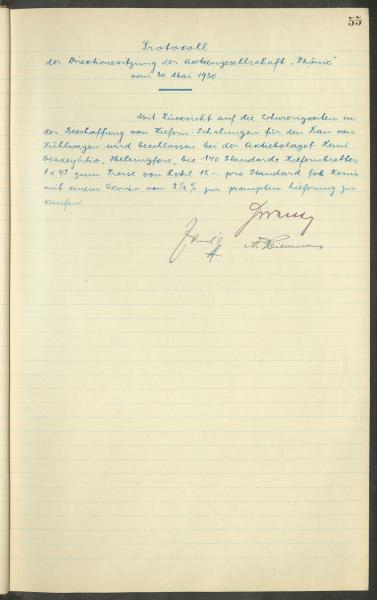 55
Protokoll
der Direktionssitzung der Aktiengesellschaft „Phönix“
vom 30. Mai 1930.
Mit Rücksicht auf die Schwierigkeiten in
der Beschaffung von Kiefern-Schalungen für den Bau von
Kühlwagen wird beschlossen bei der Aktiebolaget Kemi
Osakeyhtiö, Helsingfors, bis 140 Standards Kiefernbretter
1 x 4½ zum Preise von 15.- pro Standard fob Kemi
mit einem Skonto von 2½% zur prompten Lieferung zu
kaufen.